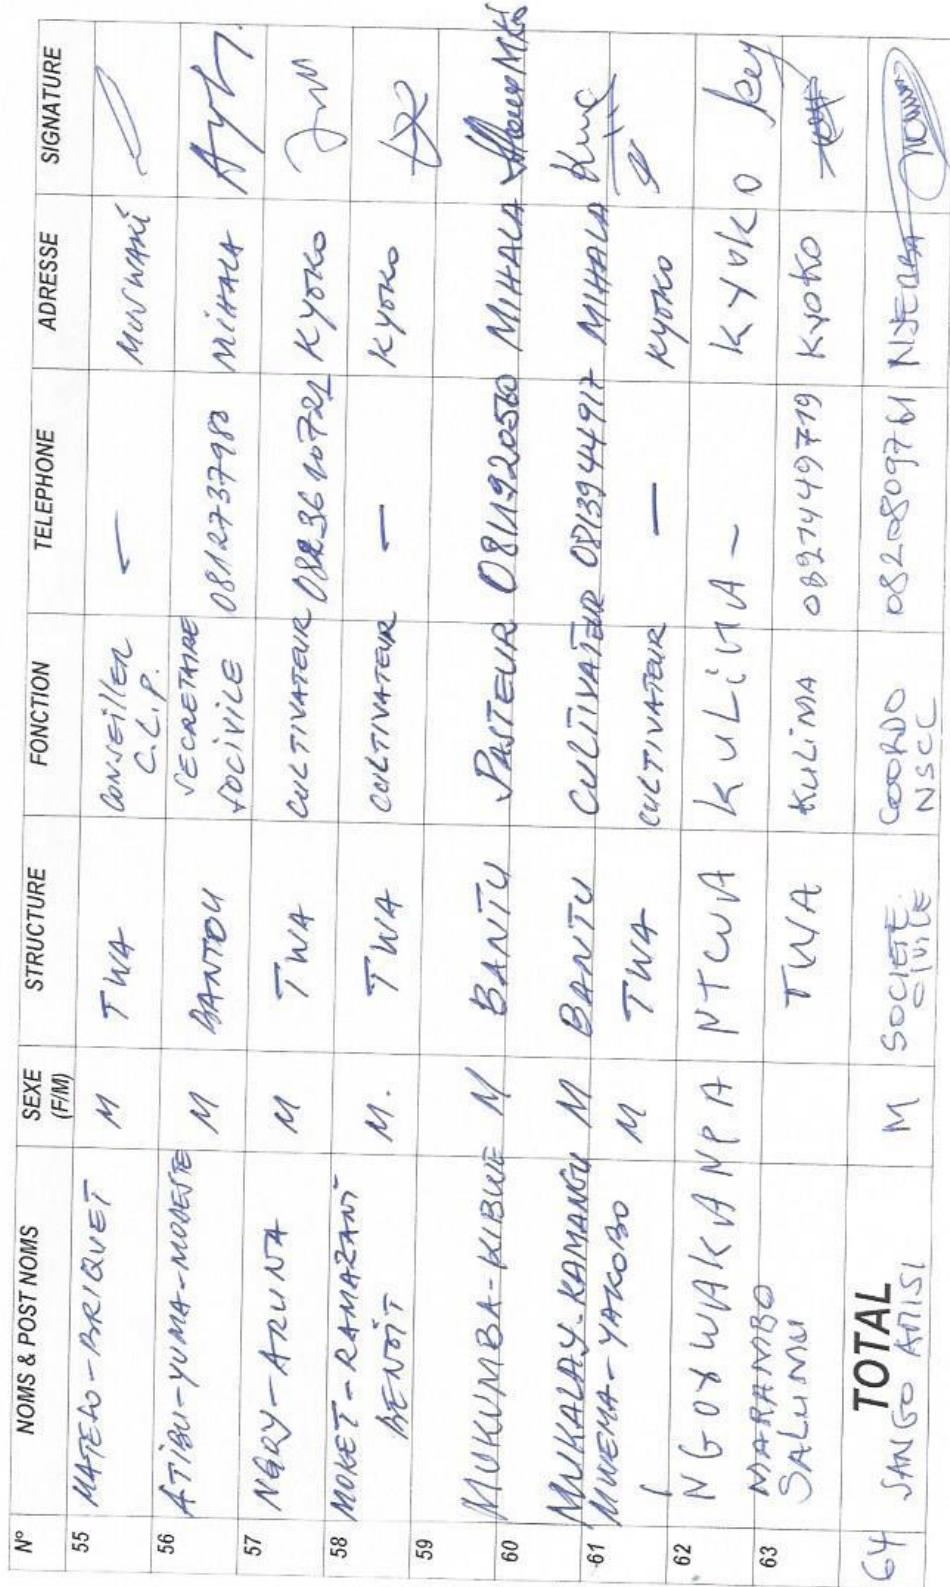 N° NOMS & POST NOMS SEXE (F/M) STRUCTURE FONCTION TELEPHONE ADRESSE SIGNATURE
55 MATESO-BRIQUET M TWA CONSEILLER C.L.P. —
56 ATIBU-YUMA-MODESTE M BANTOU SECRETAIRE SOCIVILE 0812737980 MIHALA
57 M TWA CULTIVATEUR KYOKO
58 MOKET-RAMAZANI BENOÎT M. TWA CULTIVATEUR — KYOKO
59
60 MUKUMBA-KIBWE M BANTU PASTEUR 0811920560 MIHALA
MUKALAY-KAMANGU M BANTU CULTIVATEUR 0813944917 MIHALA
61 MWEMA-YAKOBO M TWA CULTIVATEUR — KYOKO
62 NTWA KULIMA - KYOKO Key
63 MARAMBO SALUMU TWA KULIMA KYOKO
TOTAL
64 SANGO AMISI M SOCIETE CIVILE COORDO NSCC